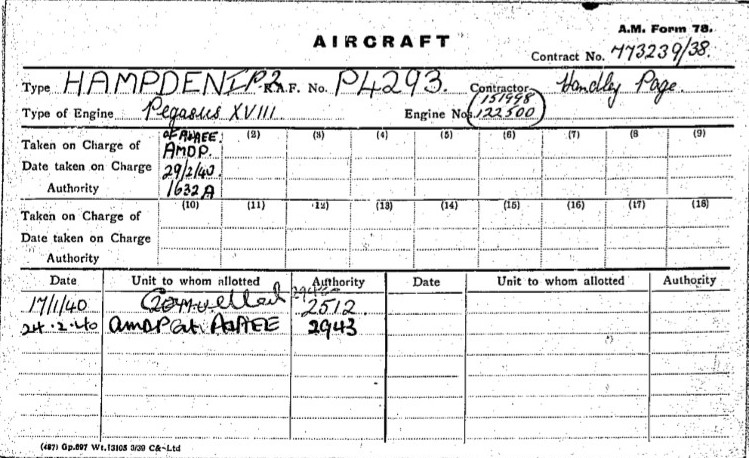 A.M. Form 78.
AIRCRAFT
Contract No. 773239/38.
Type HAMPDEN I P2 R.A.F. No. P4293. Contractor Handley Page.
151998
Type of Engine Pegasus XVIII. Engine Nos. 122500
of A&AEE. (2) (3) (4) (5) (6) (7) (8) (9)
Taken on Charge of AMDP.
Date taken on Charge 29/2/40
Authority 1632A
(10) (11) (12) (13) (14) (15) (16) (17) (18)
Taken on Charge of
Date taken on Charge
Authority
Date Unit to whom allotted Authority Date Unit to whom allotted Authority
17/1/40 2512.
24.2.40 AMDP at A&AEE 2943
(467) Gp.697 Wt.13105 3/39 C&Ltd